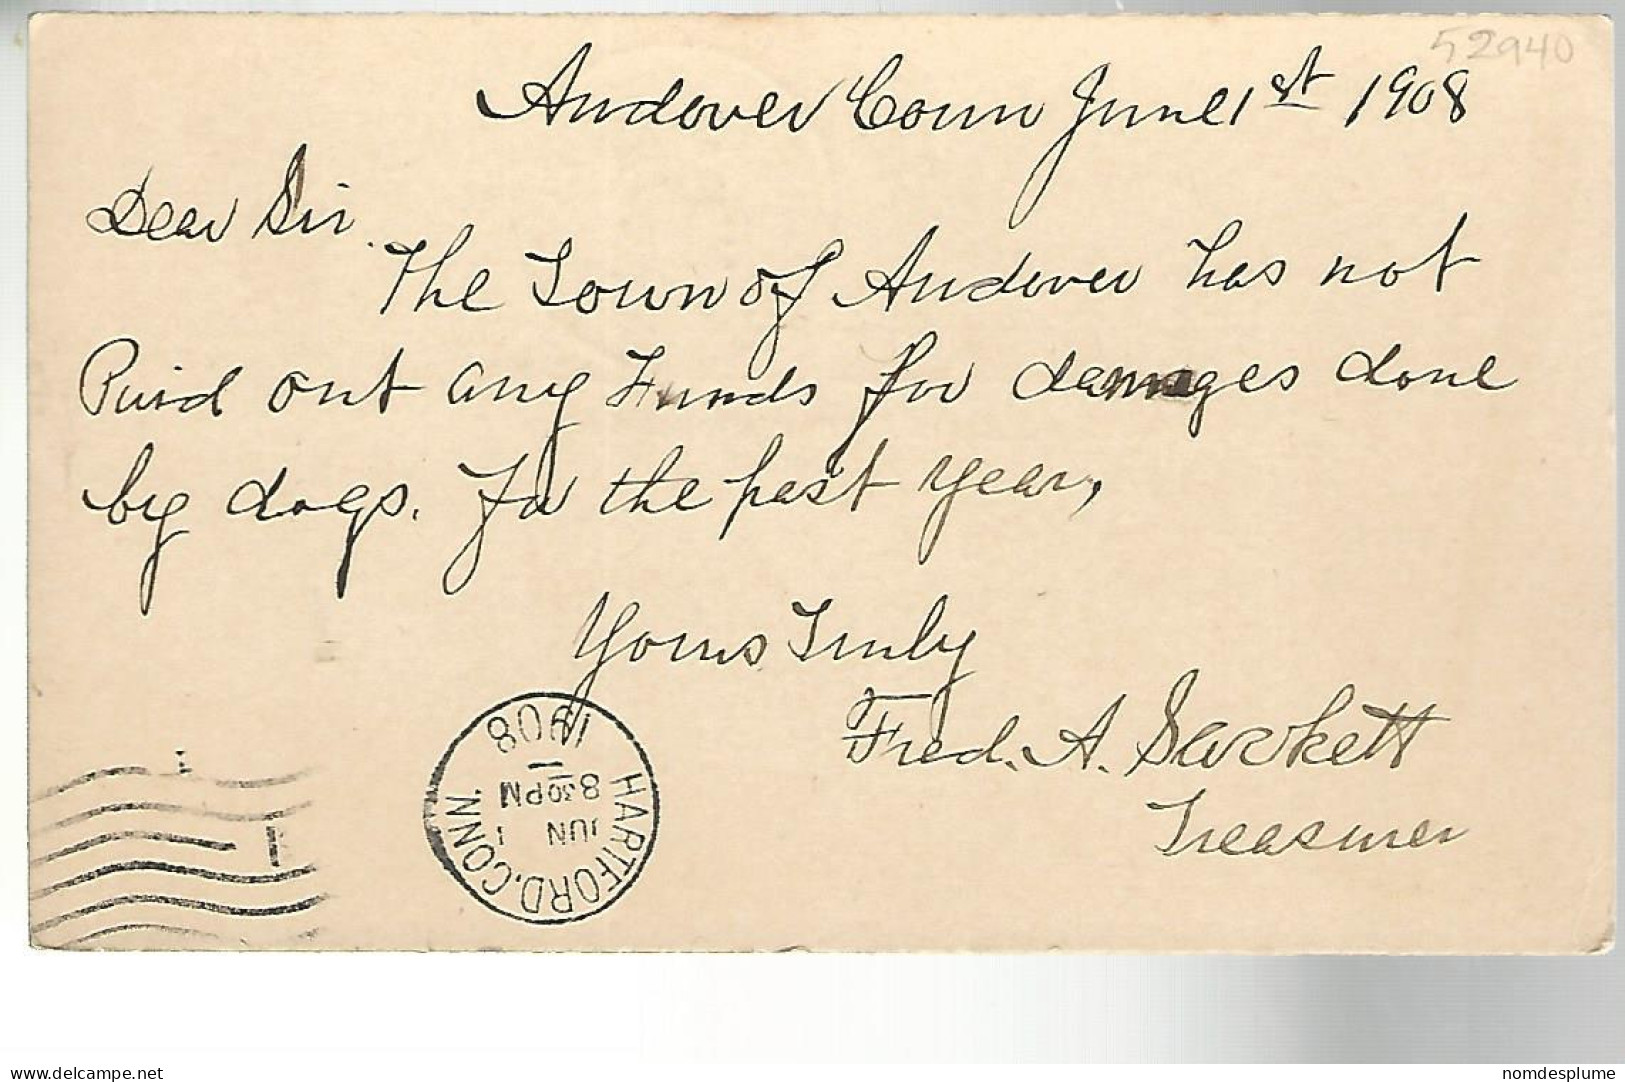 52940
Andover Conn June 1st 1908
Dear Sir.
The Town of Andover has not
Paid out any Funds for damages done
by dogs. For the past year,
Yours Truly
Fred. A. Sackett
Treasurer
HARTFORD, CONN.
JUN 1
8 30 PM
1908
www.delcampe.net
nomdesplume